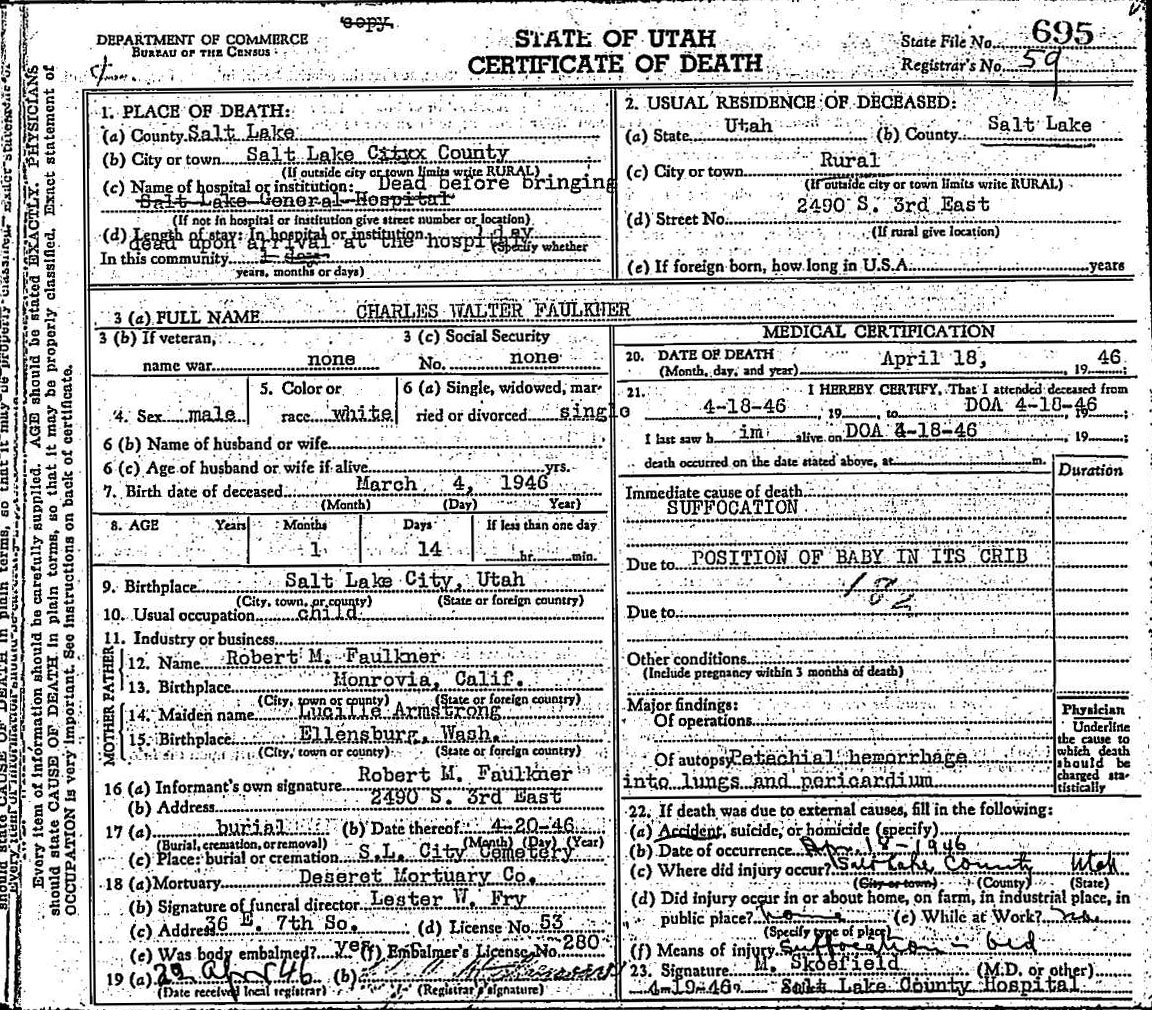 copy.
DEPARTMENT OF COMMERCE
BUREAU OF THE CENSUS
STATE OF UTAH
CERTIFICATE OF DEATH
State File No. 695
Registrar's No. 59
1. PLACE OF DEATH:
(a) County Salt Lake
(b) City or town Salt Lake Cityxx County
(If outside city or town limits write RURAL)
(c) Name of hospital or institution: Dead before bringing
Salt Lake General Hospital
(If not in hospital or institution give street number or location)
(d) Length of stay: In hospital or institution 1 day
dead upon arrival at the hospital (Specify whether
In this community 1 day
years, months or days)
2. USUAL RESIDENCE OF DECEASED:
(a) State Utah (b) County Salt Lake
(c) City or town Rural
(If outside city or town limits write RURAL)
(d) Street No. 2490 S. 3rd East
(If rural give location)
(e) If foreign born, how long in U.S.A. years
3 (a) FULL NAME CHARLES WALTER FAULKNER
3 (b) If veteran, name war none
3 (c) Social Security No. none
4. Sex male
5. Color or race white
6 (a) Single, widowed, married or divorced single
6 (b) Name of husband or wife
6 (c) Age of husband or wife if alive yrs.
7. Birth date of deceased March 4, 1946
(Month) (Day) (Year)
8. AGE Years Months Days If less than one day
1 14 hr. min.
9. Birthplace Salt Lake City, Utah
(City, town, or county) (State or foreign country)
10. Usual occupation child
11. Industry or business
FATHER
12. Name Robert M. Faulkner
13. Birthplace Monrovia, Calif.
(City, town or county) (State or foreign country)
MOTHER
14. Maiden name Lucille Armstrong
15. Birthplace Ellensburg, Wash.
(City, town or county) (State or foreign country)
16 (a) Informant's own signature Robert M. Faulkner
(b) Address 2490 S. 3rd East
17 (a) burial (b) Date thereof 4-20-46
(Burial, cremation, or removal) (Month) (Day) (Year)
(c) Place: burial or cremation S.L. City Cemetery
18 (a) Mortuary Deseret Mortuary Co.
(b) Signature of funeral director Lester W. Fry
(c) Address 36 E. 7th So. (d) License No. 53
(e) Was body embalmed? yes (f) Embalmer's License No. 280
19 (a) 22 Apr 46 (b)
(Date received local registrar) (Registrar's signature)
MEDICAL CERTIFICATION
20. DATE OF DEATH April 18, 46
(Month, day, and year) , 19
21. I HEREBY CERTIFY, That I attended deceased from
4-18-46, 19, to DOA 4-18-46, 19;
I last saw him alive on DOA 4-18-46, 19;
death occurred on the date stated above, at m.
Duration
Immediate cause of death
SUFFOCATION
Due to POSITION OF BABY IN ITS CRIB
182
Due to
Other conditions
(Include pregnancy within 3 months of death)
Major findings:
Of operations
Of autopsy Petechial hemorrhage
into lungs and pericardium
Physician
Underline
the cause to
which death
should be
charged sta-
tistically
22. If death was due to external causes, fill in the following:
(a) Accident, suicide, or homicide (specify)
(b) Date of occurrence Apr. 18-1946
(c) Where did injury occur? Salt Lake County Utah
(City or town) (County) (State)
(d) Did injury occur in or about home, on farm, in industrial place, in
public place? home (e) While at Work? no
(Specify type of place)
(f) Means of injury Suffocation in bed
23. Signature M. Skoefield (M.D. or other)
4-19-46 Salt Lake County Hospital
Every item of information should be carefully supplied. AGE should be stated EXACTLY. PHYSICIANS
should state CAUSE OF DEATH in plain terms, so that it may be properly classified. Exact statement of
OCCUPATION is very important. See instructions on back of certificate.